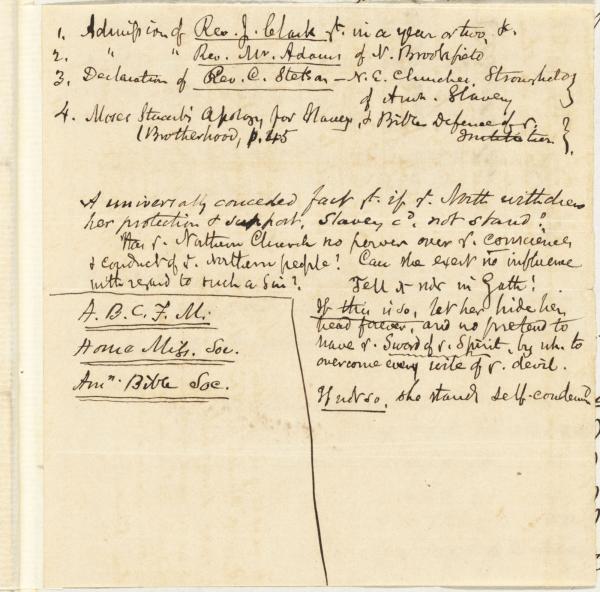 1. Admission of Rev. J. Clark yt. in a year or two, &.
2. " " Rev. Mr. Adams of N. Brookfield
3. Declaration of Rev. C. Stetson — N. E. Churches, Stronghold
of Amn. Slavery
4. Moses Stuart's Apology for Slavery, & Bible Defence of y.
(Brotherhood, p. 45 Institution.
A universally conceded fact yt. if y. North withdrew
her protection & support, Slavery cd. not stand.
Has y. Northern Church no power over y. consciences
& conduct of y. Northern people? Can she exert no influence
with regard to such a Sin?
Tell it not in Gath!
A. B. C. F. M.
Home Miss. Soc.
Amn. Bible Soc.
If this is so, let her hide her
head forever, and no pretend to
have y. Sword of y. Spirit, by wh. to
overcome every wile of y. devil.
If not so, she stands self-condemd